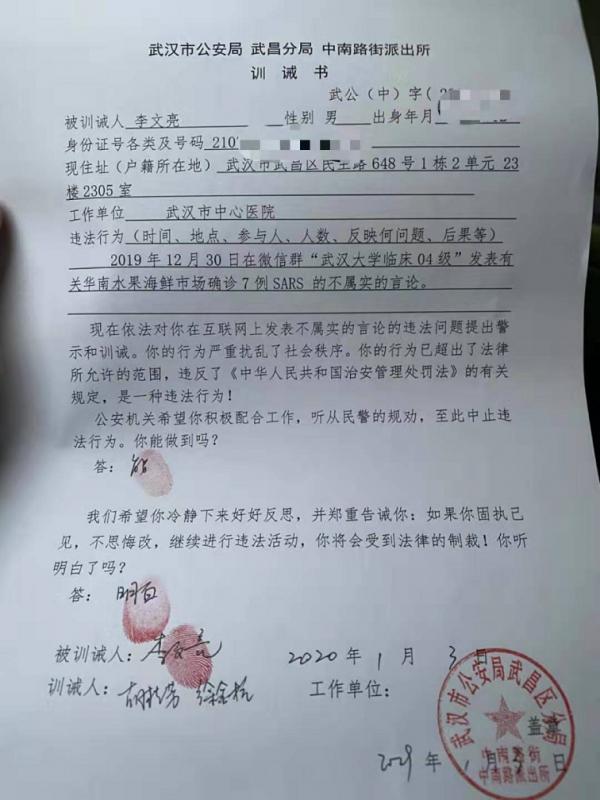 武汉市公安局 武昌分局 中南路街派出所
训 诫 书
武公（中）字(2
被训诫人 李文亮 性别 男 出身年月
身份证号各类及号码 210
现住址（户籍所在地） 武汉市武昌区民主路 648 号 1 栋 2 单元 23
楼 2305 室
工作单位 武汉市中心医院
违法行为（时间、地点、参与人、人数、反映何问题、后果等）
2019 年 12 月 30 日在微信群“武汉大学临床 04 级”发表有
关华南水果海鲜市场确诊 7 例 SARS 的不属实的言论。
现在依法对你在互联网上发表不属实的言论的违法问题提出警
示和训诫。你的行为严重扰乱了社会秩序。你的行为已超出了法律
所允许的范围，违反了《中华人民共和国治安管理处罚法》的有关
规定，是一种违法行为！
公安机关希望你积极配合工作，听从民警的规劝，至此中止违
法行为。你能做到吗？
答： 能
我们希望你冷静下来好好反思，并郑重告诫你：如果你固执己
见，不思悔改，继续进行违法活动，你将会受到法律的制裁！你听
明白了吗？
答： 明白
被训诫人： 李文亮 2020 年 1 月 3 日
训诫人： 工作单位：
武汉市公安局武昌区分局
盖章
中南路街
中南路派出所
年 月 日